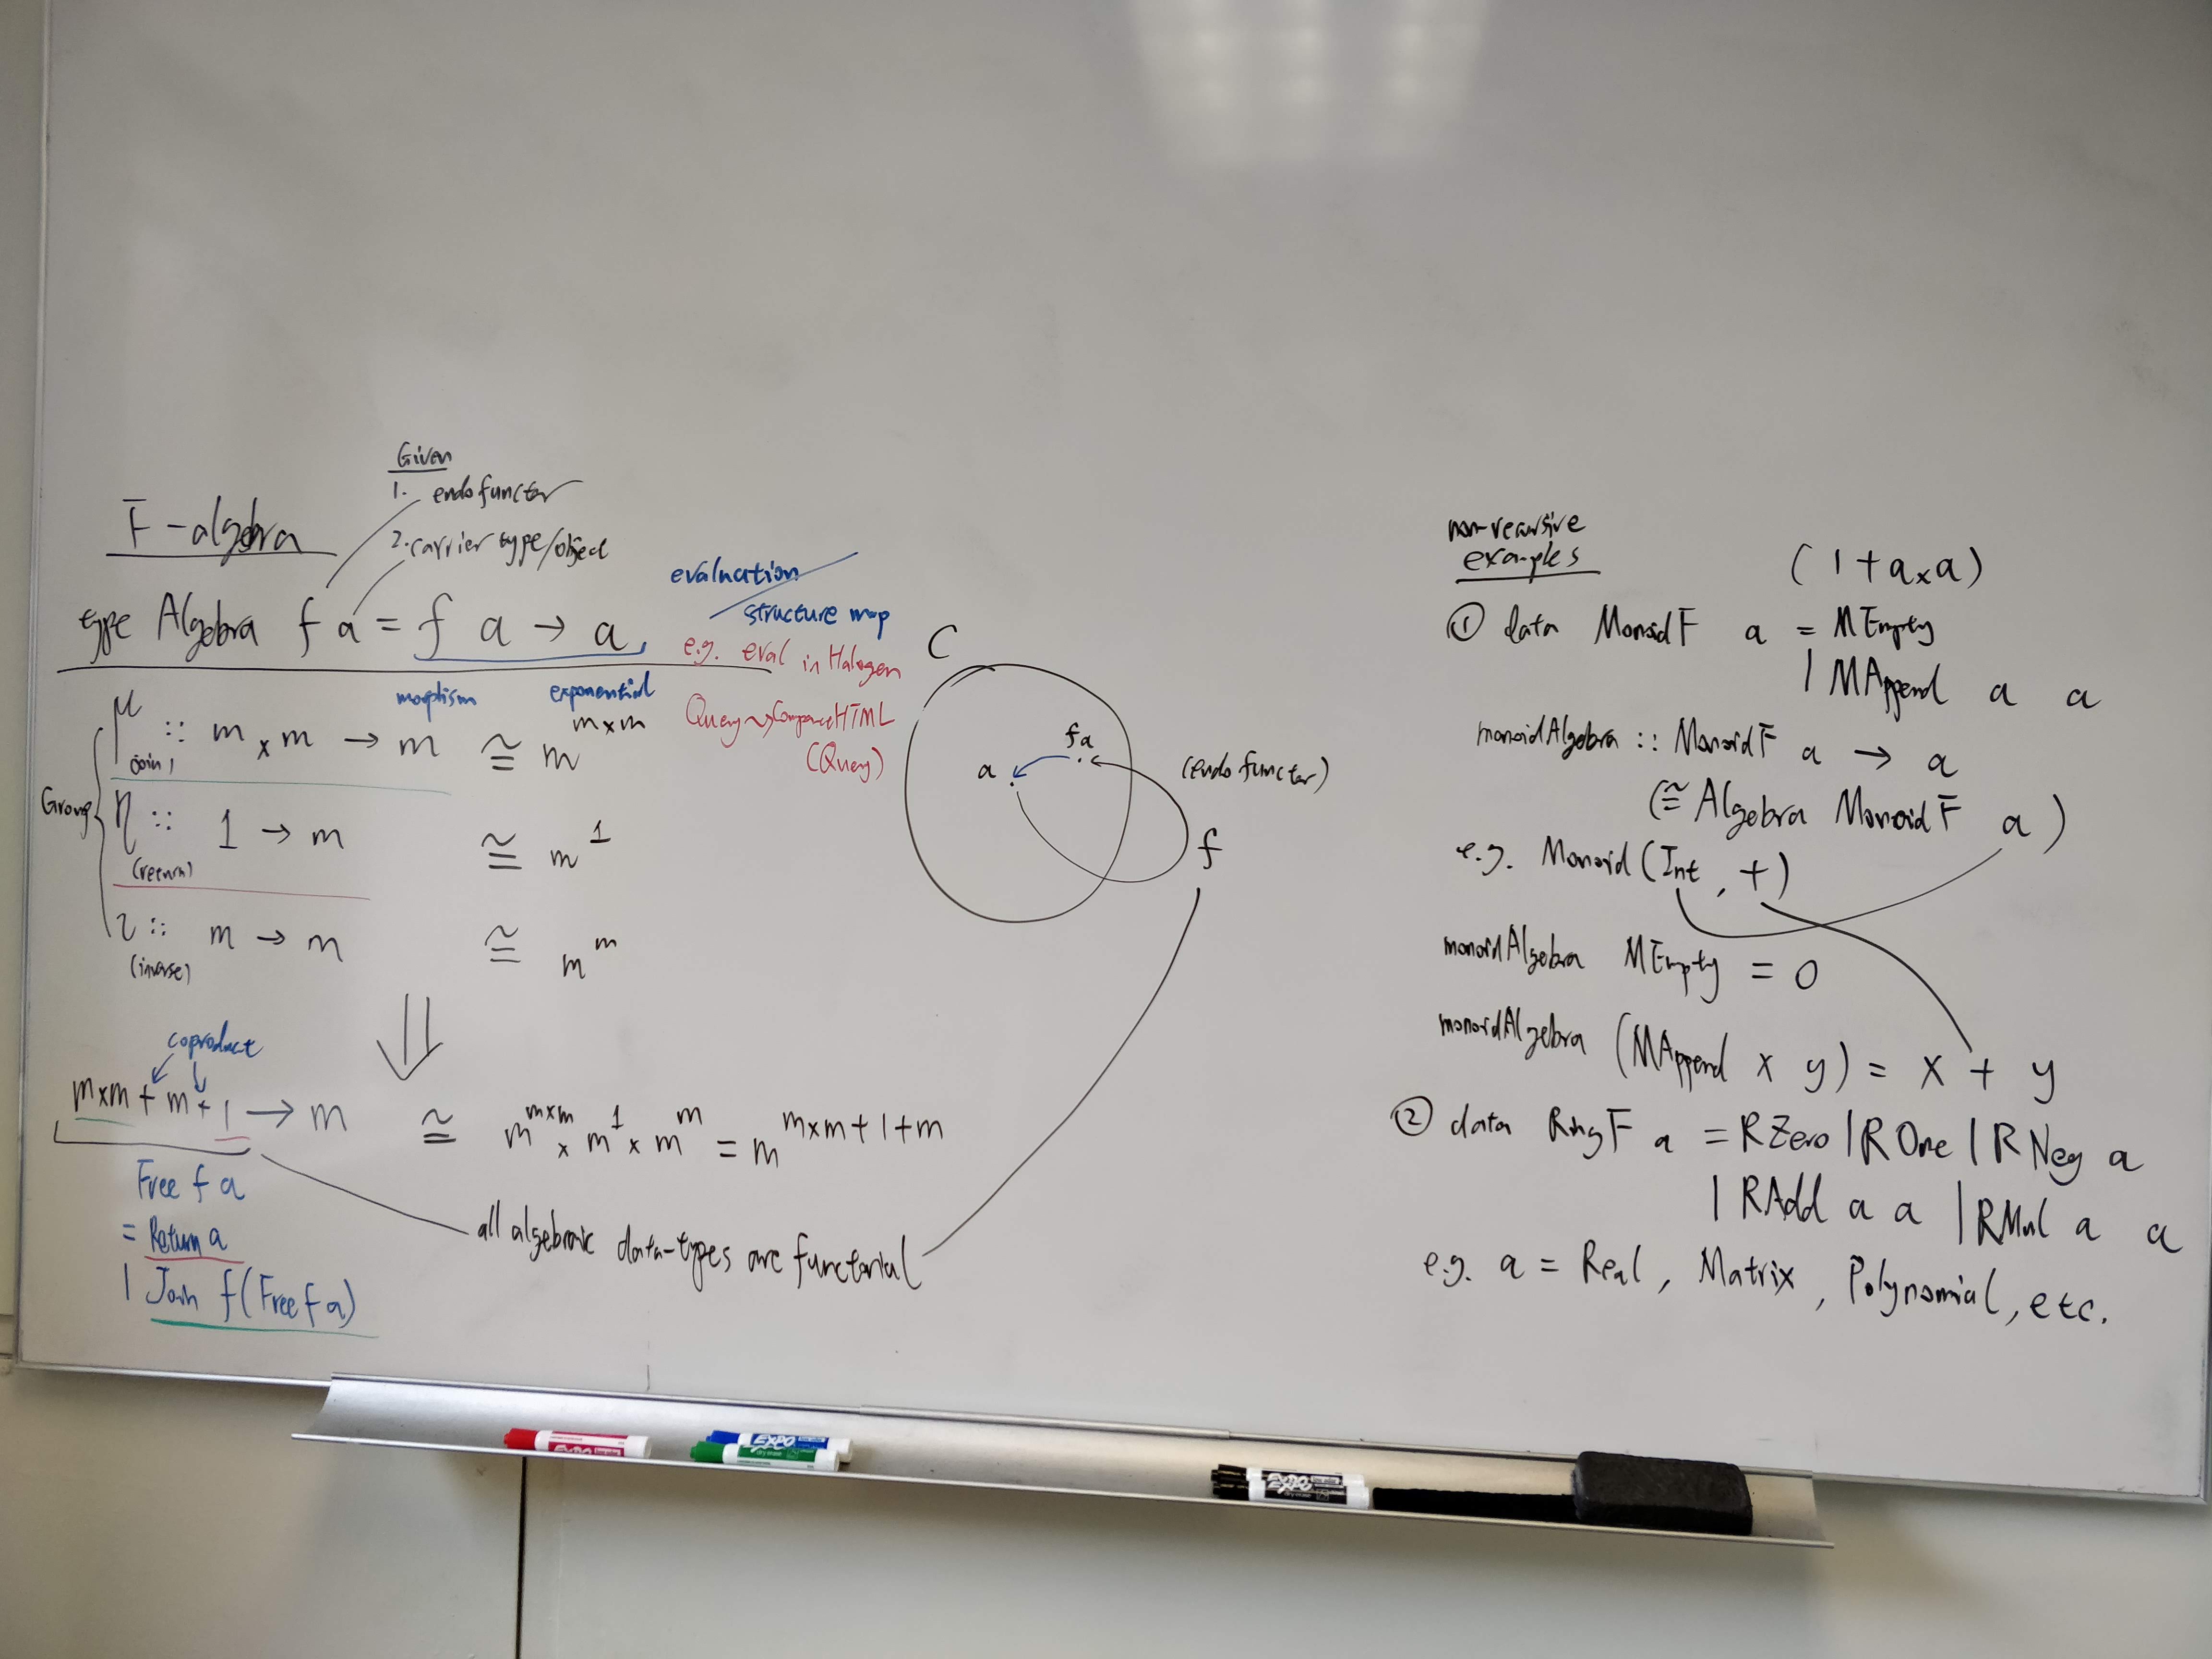 Given
1. endofunctor
F-algebra
2. carrier type/object
type Algebra f a = f a → a
evaluation
structure map
e.g. eval in Halogen
morphism
exponential
μ :: m × m → m ≅ m^{m×m}
(join)
Query ⤳ ComponentHTML
(Query)
Group
η :: 1 → m ≅ m^1
(return)
ι :: m → m ≅ m^m
(inverse)
⇓
coproduct
m×m + m + 1 → m ≅ m^{m×m} × m^1 × m^m = m^{m×m+1+m}
Free f a
= Return a
| Join f(Free f a)
all algebraic data-types are functorial
C
f a
a
(endofunctor)
f
non-recursive
examples
(1 + a × a)
① data MonoidF a = MEmpty
| MAppend a a
monoidAlgebra :: MonoidF a → a
(≅ Algebra MonoidF a)
e.g. Monoid (Int, +)
monoidAlgebra MEmpty = 0
monoidAlgebra (MAppend x y) = x + y
② data RingF a = RZero | ROne | RNeg a
| RAdd a a | RMul a a
e.g. a = Real, Matrix, Polynomial, etc.
EXPO
EXPO
EXPO